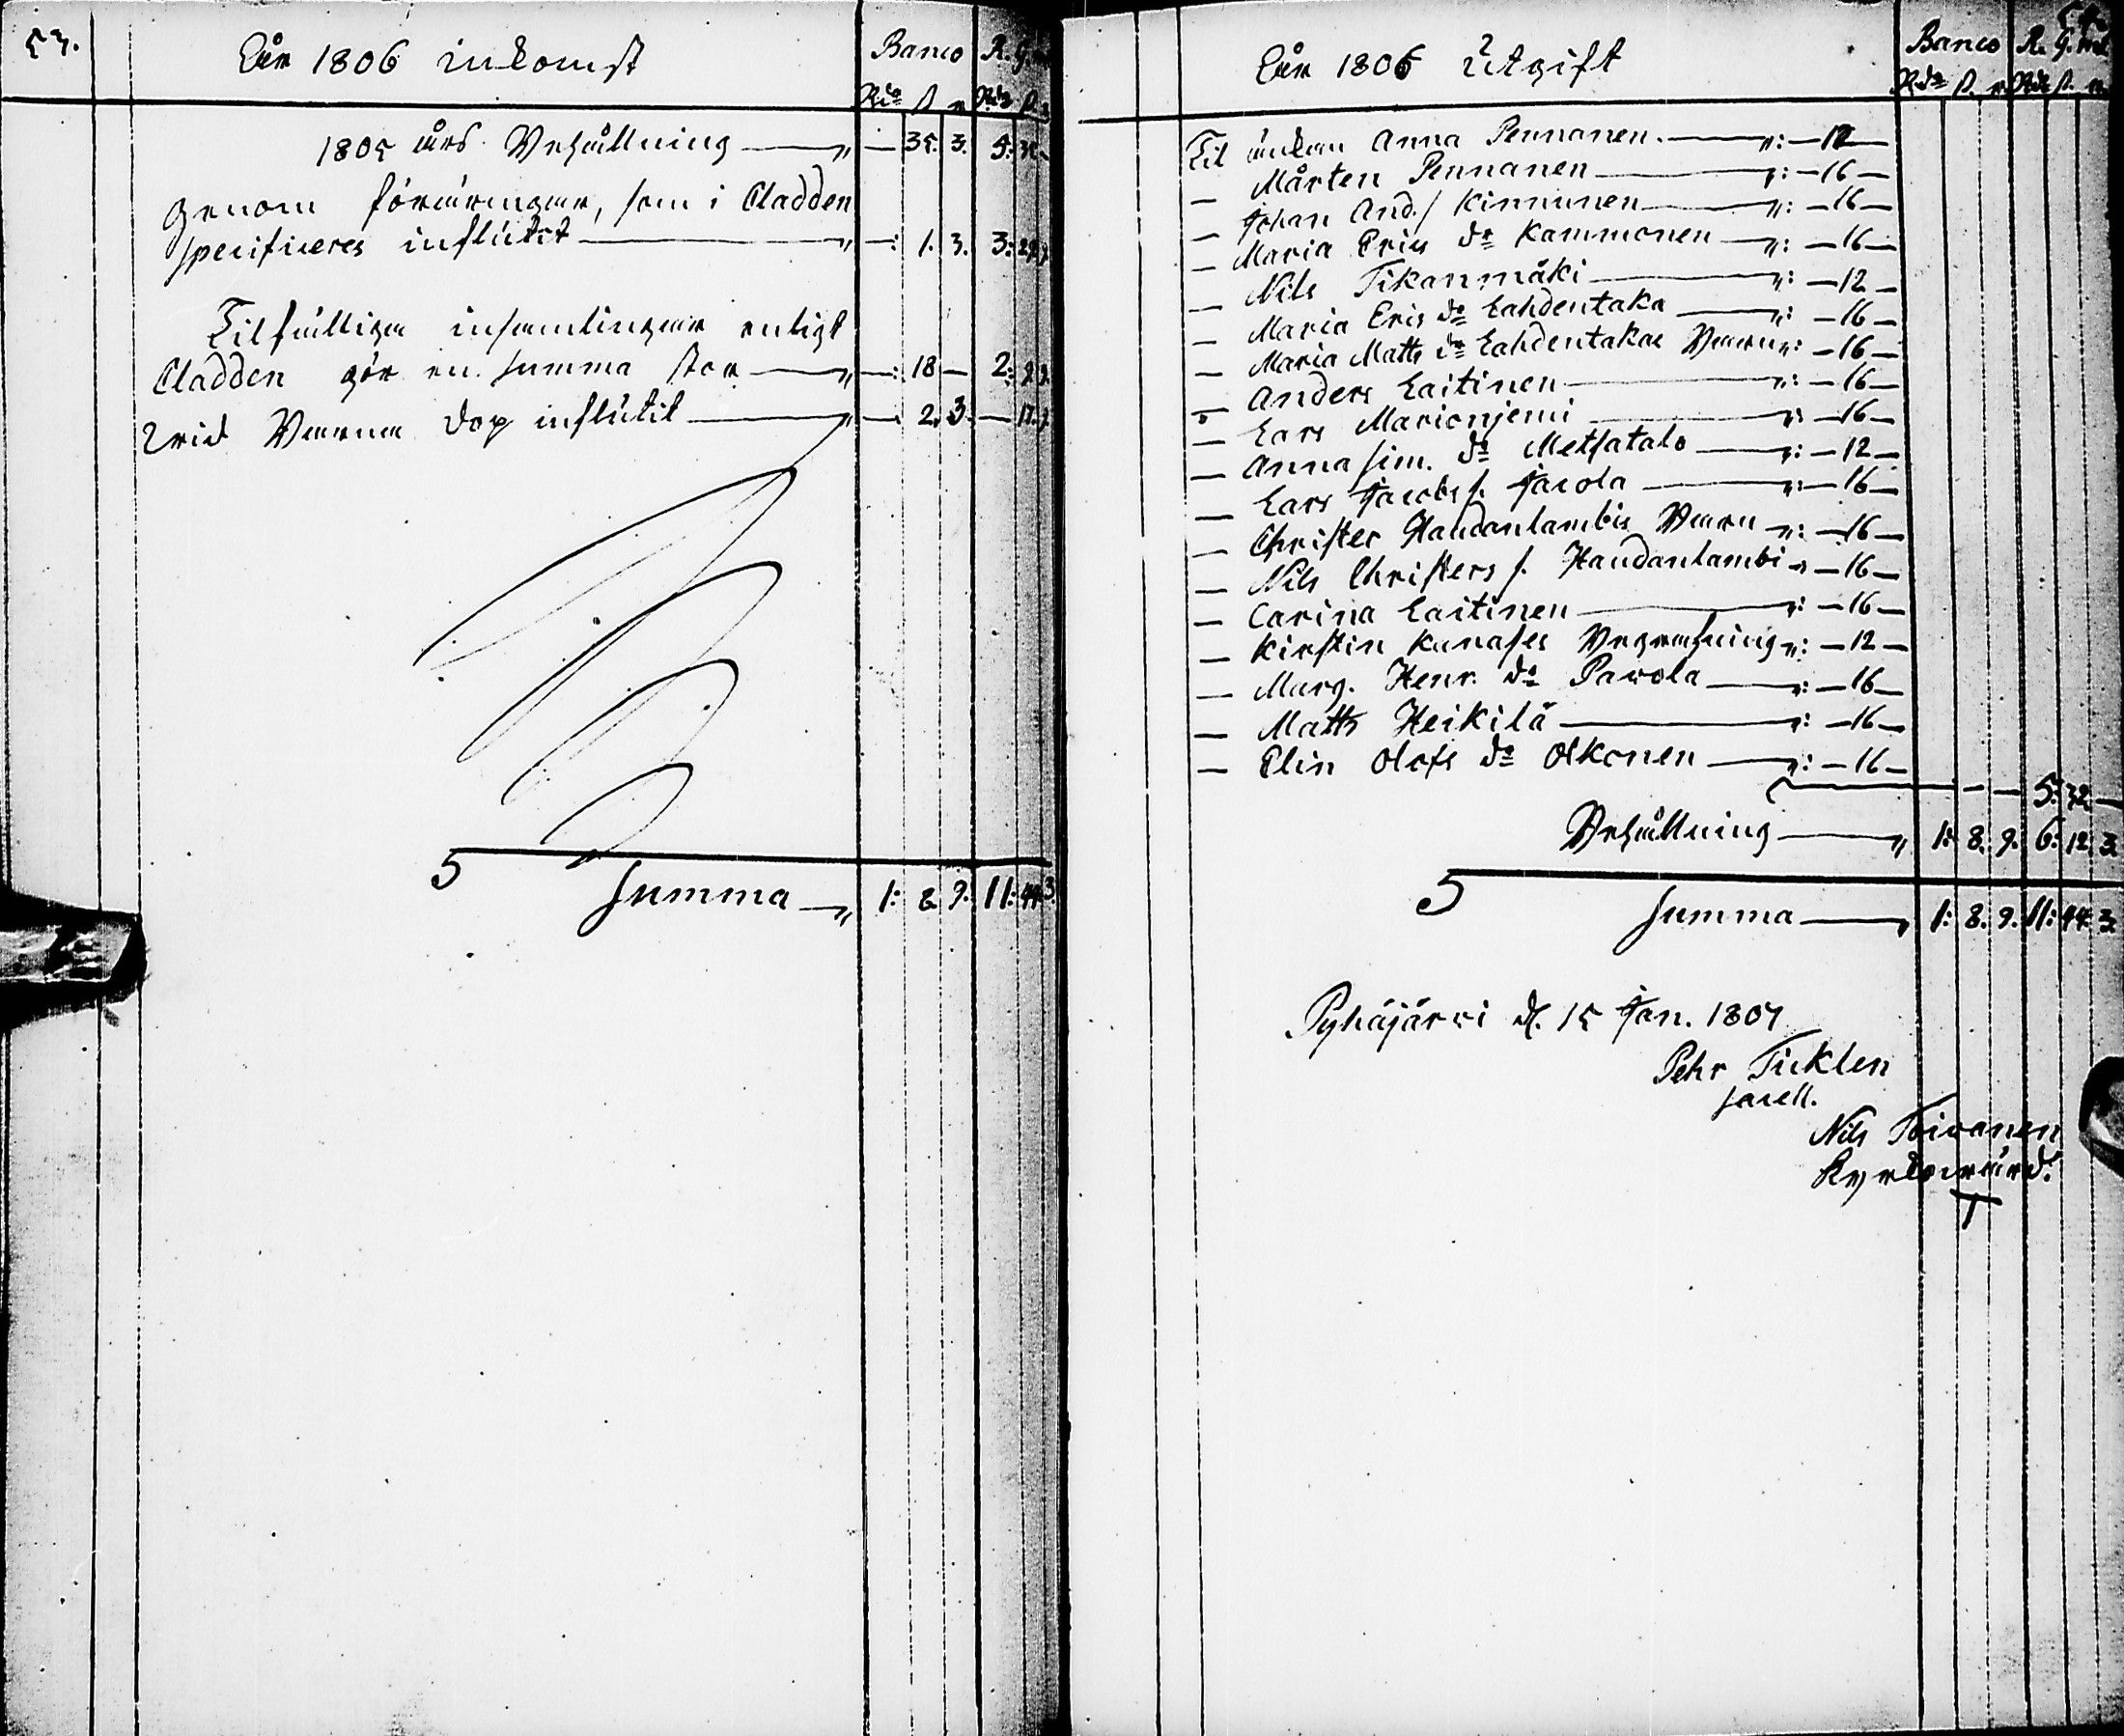 53.
År 1806 inkomst
Banco R. G.
Rdr ß. r. Rdr ß. r.
1805 års Behållning — „ — 35. 3. 5:
genom föräringar, som i Cladden
specificeres influtit — „ —: 1. 3. 3:
Tilfälliga insamlingar enligt
Cladden gör en summa stor — „ —: 18 — 2:
Wid Barna dop influtit — „ — 2. 3. — 17.
Summa — „ 1: 8. 9. 11: 44. 3.
54.
År 1806 Utgift
Banco R. G.
Rdr ß. r. Rdr ß. r.
Til änkan Anna Pennanen. — „: — 12 —
— Mårten Pennanen — „: — 16 —
— Johan And. s. Kinnunen — „: — 16 —
— Maria Erics dr Kammonen — „: — 16 —
— Nils Tikanmäki — „: — 12 —
— Maria Erics dr Lahdentaka — „: — 16 —
— Maria Matts dr Lahdentakas Barn „: — 16 —
— Anders Laitinen — „: — 16 —
— Lars Marioniemi — „: — 16 —
— Anna Sim. dr Metsätalo — „: — 12 —
— Lars Jacobs s. Jacola — „: — 16 —
— Christer Haudanlambis Barn „: — 16 —
— Nils Christers s. Haudanlambi „ — 16 —
— Carina Laitinen — „: — 16 —
— Kirstin Kanases Begrafning „: — 12 —
— Marg. Henr. dr Parola — „: — 16 —
— Matts Heikilä — „: — 16 —
— Elin Olofs dr Oikonen — „: — 16 —
— — — 5: 32 —
Behållning — „ 1: 8. 9. 6: 12. 3.
Summa — „ 1: 8. 9. 11: 44. 3.
Pyhäjärvi d. 15 Jan. 1807
Pehr Ticklen
sacell.
Nils Toivanen
Kyrkovärd.